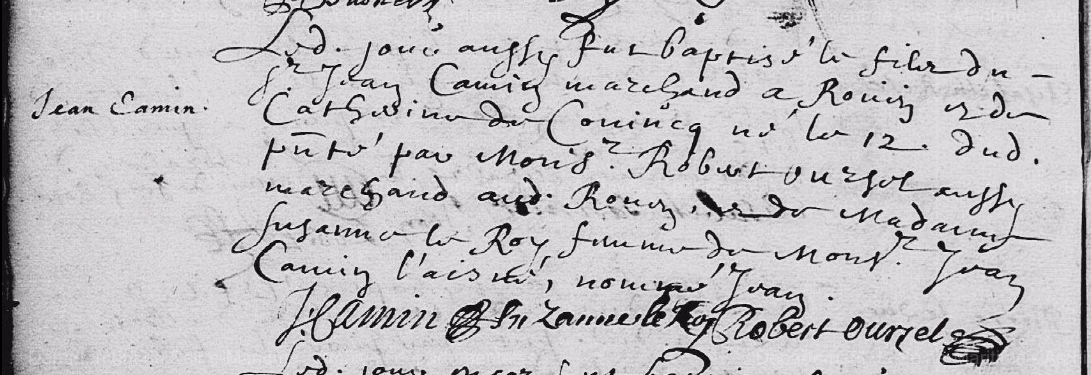 Led. jour aussy fut baptisé le filz du
Sr Jean Camin marchand a Rouen et de
Jean Camin.
Catherine de Conincq né le 12. dud.
pñté par Monsr. Robert oursel aussy
marchand aud. Rouen, et de Madame
Susanne le Roy femme de Monsr. Jean
Camin l'aisné, nommé Jean.
J. Camin Suzanne le Roy Robert Oursel
Led. jour